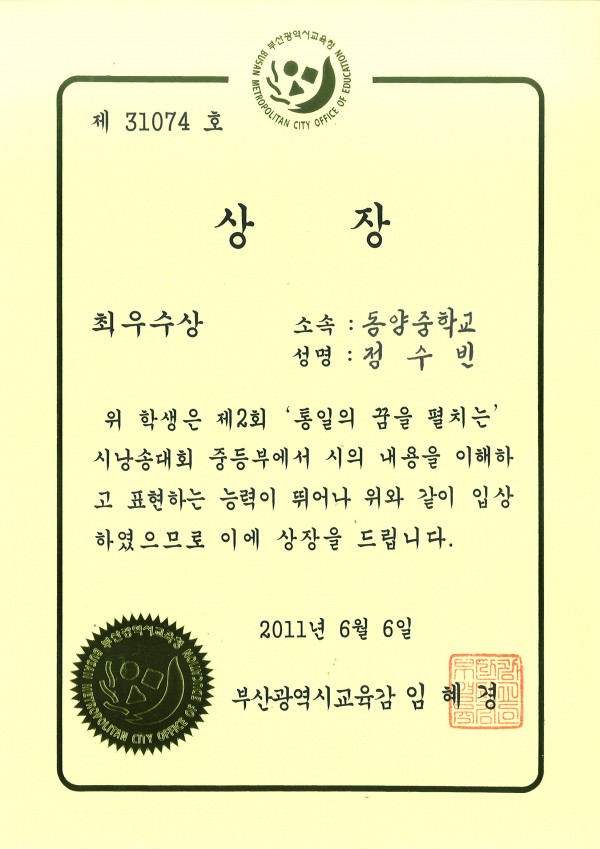 부산광역시교육청
BUSAN METROPOLITAN CITY OFFICE OF EDUCATION
제 31074 호
상 장
최우수상
소속 : 동양중학교
성명 : 정 수 빈
위 학생은 제2회 ‘통일의 꿈을 펼치는’
시낭송대회 중등부에서 시의 내용을 이해하
고 표현하는 능력이 뛰어나 위와 같이 입상
하였으므로 이에 상장을 드립니다.
2011년 6월 6일
부산광역시교육감 임 혜 경
부산광역시교육청
BUSAN METROPOLITAN CITY OFFICE OF EDUCATION